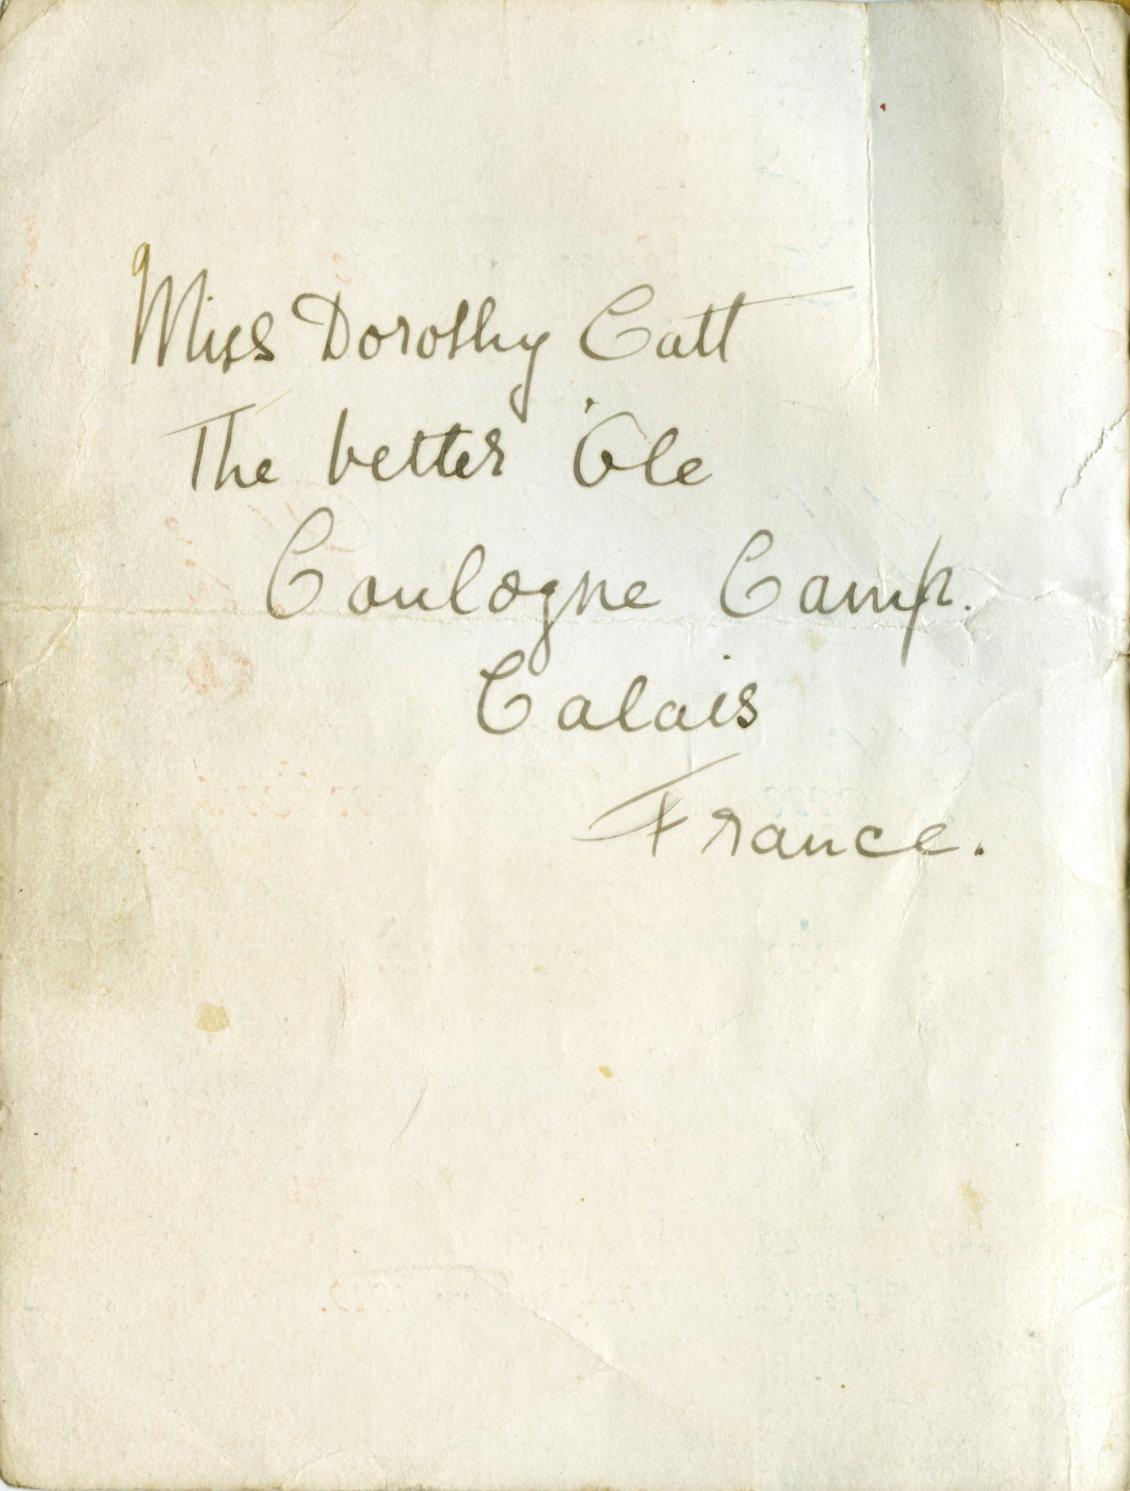 Miss Dorothy Catt
The better 'Ole
Coulogne Camp.
Calais
France.